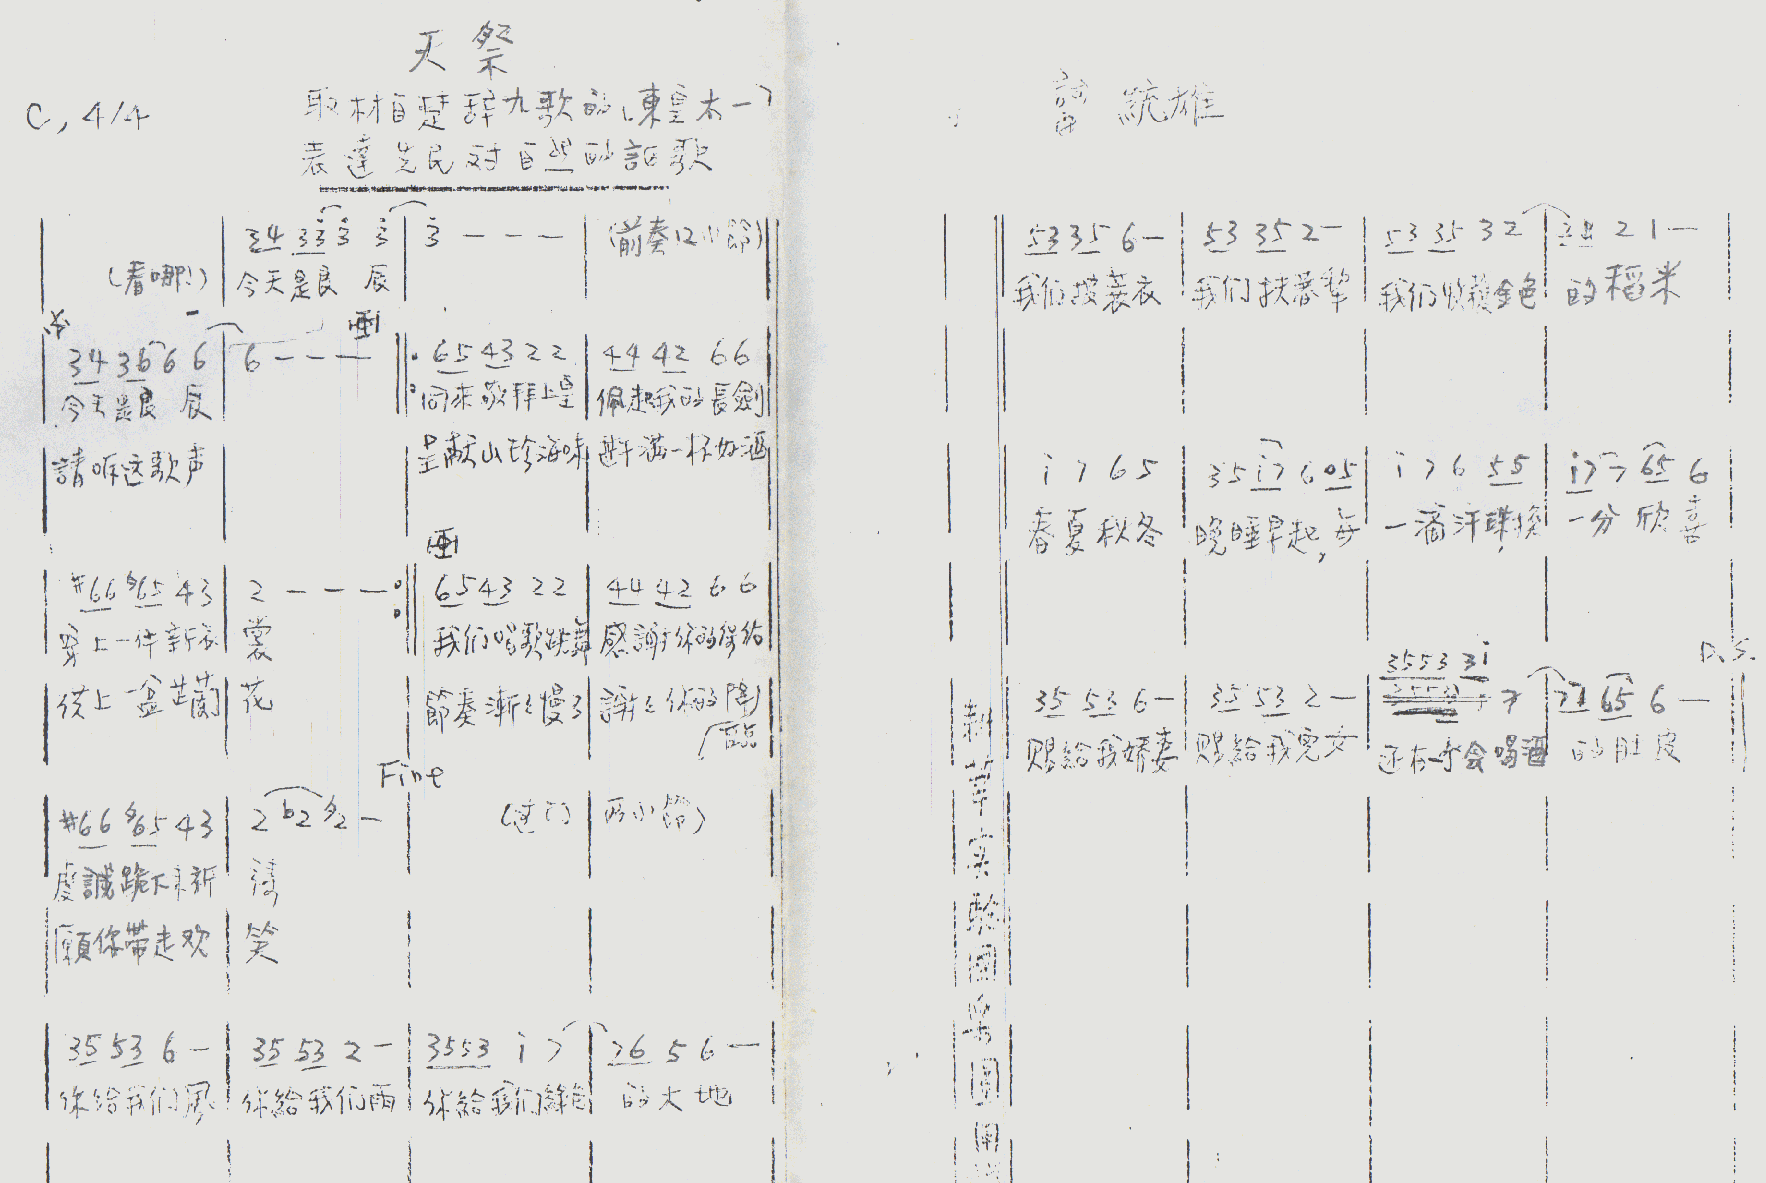 天祭
C, 4/4
取材自楚辞九歌的「東皇太一」
表達先民对自然的謳歌
34 33 3 3 3 - - - (前奏12小節)
(看哪!) 今天是良 辰
34 36 6 6 6 - - - 65 43 2 2 44 42 6 6
今天是良 辰 同来敬拜上皇 佩起我的長劍
請听这歌声 呈献山珍海味 斟满一杯好酒
#66 65 43 2 - - - 65 43 2 2 44 42 6 6
穿上一件新衣 裳 我们唱歌跳舞 感謝你的
供上一盆芷蘭 花 節奏漸漸慢了 謝謝你的降臨
Fine
#66 65 43 2 b2 2 - (过门 两小節)
虔誠跪下来祈 祷
願你带走欢 笑
35 53 6 - 35 53 2 - 3553 i 7 76 5 6 -
你給我们風 你給我们雨 你給我们綠色 的大地
統雄
53 35 6 - 53 35 2 - 53 35 3 2 2 1 -
我们披蓑衣 我们扶着犂 我们收穫金色 的稻米
i 7 6 5 35 i7 6 05 i 7 6 55 i7 7 65 6
春夏秋冬 晚睡早起,每 一滴汗珠換 一分欣喜
D.S.
3553 3i
35 53 6 - 35 53 2 - 7 65 6 -
賜給我嬌妻 賜給我兒女 还有一个会喝酒 的肚皮
耕莘实驗國乐團團